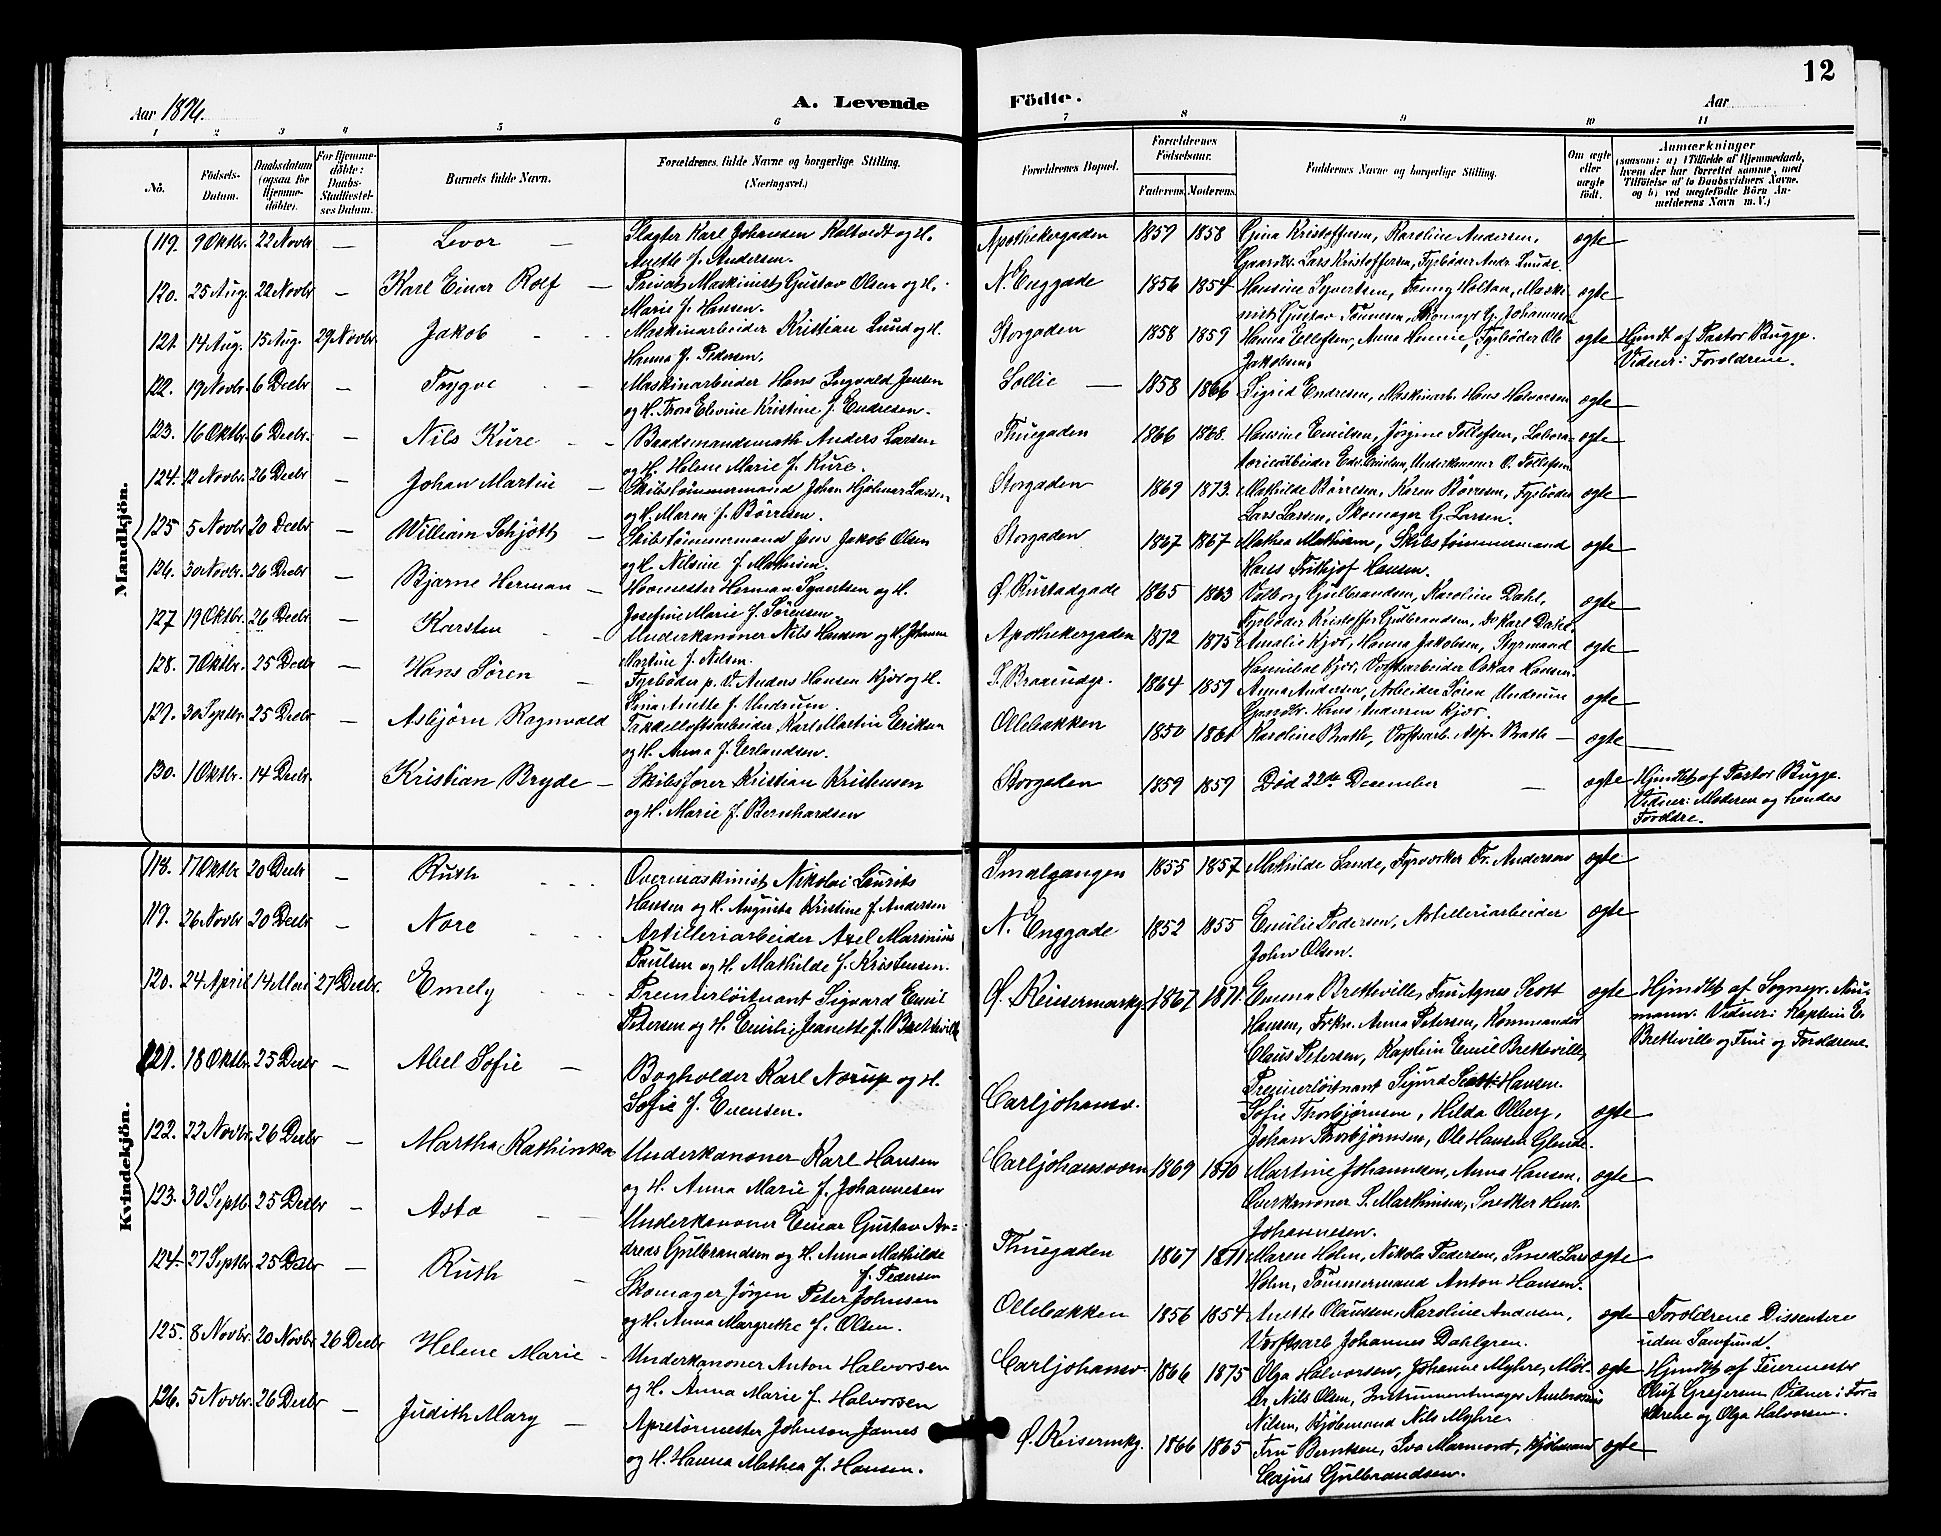 12
Aar 1896.
A. Levende
Födte.
Aar
1 2 3 4 5 6 7 8 9 10 11
No.
Födsels-Datum.
Daabsdatum (ogsaa for Hjemme-döbte).
For Hjemme-döbte: Daabs-Stadfæstel-ses Datum.
Barnets fulde Navn.
Forældrenes fulde Navne og borgerlige Stilling.
(Næringsvei.)
Forældrenes Bopæl.
Forældrenes Födselsaar.
Faderens.
Moderens.
Faddernes Navne og borgerlige Stilling.
Om ægte eller uægte födt.
Anmærkninger
(saasom: a) i Tilfælde af Hjemmedaab, hvem der har forrettet samme, med Tilföielse af to Daabsvidners Navne, og b) ved uægtefödte Börn An-melderens Navn m. V.)
Mandkjön.
119. 9 Oktbr. 22 Novbr — Levor — Slagter Karl Johansen Kaltvedt og H. Anette f. Andersen. Apothekergaden 1859 1858 Gina Kristoffersen, Karoline Andersen, Gaardbr. Lars Kristoffersen, Fyrböder Andr. Lunde. ægte
120. 25 Aug. 22 Novbr — Karl Einar Rolf — Privat Maskinist Gustav Olsen og H. Marie f. Hansen. N. Enggade 1856 1854 Hansine Syvertsen, Fanny Holtan, Maski-nist Gustav Tönnesen, Skomager G. Johannesen ægte
121. 14 Aug. 15 Aug. 29 Novbr. Jakob — Maskinarbeider Kristian Lund og H. Hanna f. Pedersen. Storgaden 1858 1859 Hanna Ellefsen, Anna Hennie, Fyrböder Ole Jakobsen. ægte Hjmdt af Pastor Bugge. Vidner: Forældrene.
122. 19 Novbr. 6 Decbr — Trygve — Maskinarbeider Hans Ingvald Jensen og H. Thora Elevine Kristine f. Endresen. Sollie — 1858 1866 Sigrid Endresen, Maskinarb. Hans Halvorsen ægte
123. 16 Oktbr. 6 Decbr. — Nils Kure — Baadsmandsmath Anders Larsen og H. Helene Marie f. Kure. Thuegaden 1866 1868. Hansine Emilsen, Jörgine Tollefsen, Labora-torieatbeider Edv. Emilsen, Underkanoner O. Tollefsen ægte
124. 12 Novbr. 26 Decbr — Johan Martin — Skibstømmermand Johan Hjalmar Larsen og H. Maren f. Börresen. Storgaden 1869 1873. Mathilde Börresen, Karen Börresen, Fyrböder Lars Larsen, Skomager G. Larsen. ægte
125 5 Novbr 20 Decbr — William Schjött — Skibstømmermand Jens Jakob Olsen og H. Nilsine f. Mathisen. Storgaden 1867 1867 Mathea Mathisen, Skibstømmermand Hans Frithjof Hansen. ægte
126. 30 Novbr. 26 Decbr — Bjarne Herman — Hovmester Herman Syvertsen og H. Josefine Marie f. Sörensen. Ø. Rustadgade 1865 1863 Valborg Gulbrandsen, Karoline Dahl, Fyrböder Kristoffer Gulbrandsen, Do Karl Dahl. ægte
127 19 Oktbr. 26 Decbr — Karsten — Underkanoner Nils Hansen og H. Johanne Martine f. Nilsen. Apothekergaden 1872 1875 Amalie Kjær, Hanna Jakobsen, Styrmand Hannibal Kjær, Verftsarbeider Oskar Hansen. ægte
128. 7 Oktbr. 25 Decbr — Hans Sören — Fyrböder p. V. Anders Hansen Kjær og H. Lina Anette f. Undrum. S. Bramudgr. 1864 1859 Anna Andersen, Arbeider Sören Undrum Gaardbr. Hans Andersen Kjær. ægte
129. 30 Septbr. 25 Decbr — Asbjörn Ragnvald Takkelloftsarbeider Karl Martin Eriksen og H. Anna f. Erlandsen. Ollebakken 1850 1861 Karoline Bath, Verftsarb. Alfr. Bath — ægte —
130. 1 Oktbr. 14 Decbr. Kristian Bryde — Skibsfører Kristian Kristensen og H. Marie f. Bernhardsen Storgaden 1859 1859 Död 22de December — ægte Hjmdbt af Pastor Bugge. Vidner: Moderen og hendes Forældre.
Kvindekjön.
118. 17 Oktbr 20 Decbr — Ruth — Overmaskinist Nikolai Laurits Hansen og H. Augusta Kristine f. Andersen Smalgangen 1855 1857 Mathilde Lande, Fyrværker Fr. Andersen ægte
119. 26 Novbr 20 Decbr — Nore — Artilleriarbeider Axel Marinius Paulsen og H. Mathilde f. Kristensen. N. Enggade 1852 1855 Emilie Pedersen, Artilleriarbeider John Olsen. ægte
120. 24 April 14 Mai 27 Decbr. Emely — Premierløitnant Sigvard Emil Petersen og H. Emilie Jeanette f. Bretteville Ø. Keisermarkg. 1867 1871. Emma Bretteville, Fru Agnes Scott Hansen, Frkn. Anna Petersen, Kommandør Claus Petersen, Kaptein Emil Bretteville, Premierløitnant Sigurd Scott Hansen. ægte Hjmdbt af Sognepr. Nau-mann. Vidner: Kaptein E. Bretteville og Frue og Forældrene.
121. 18 Oktbr. 25 Decbr — Abel Sofie — Bogholder Karl Norup og H. Sofie f. Evensen. Carljohansv. Sofie Thorbjørnsen, Hilda Olberg, Johan Thorbjørnsen, Ole Hansen Glende. ægte
122. 22 Novbr. 26 Decbr — Martha Kathinka Underkanoner Karl Hansen og H. Anna Marie f. Johannesen Carljohansværn 1869 1870 Martine Johannesen, Anna Hansen, Overkanoner S. Marthinsen, Snedker Henr. Johannesen. ægte
123. 30 Septb. 25 Decbr — Asta — Underkanoner Einar Gustav An-dreas Gulbrandsen og H. Anna Mathilde f. Pedersen Thuegaden 1867 1871 Maren Holm, Nikola Pedersen, Smed Lars Holm, Tømmermand Anton Hansen. ægte
124. 27 Septbr 25 Decbr — Ruth — Skomager Jörgen Peter Johnsen og H. Anna Margrethe f. Olsen. Ollebakken 1856 1854 Anette Claussen, Karoline Andersen, Verftsarb. Johannes Dahlgren. ægte Forældrene Dissentere uden Samfund.
125. 8 Novbr. 20 Novbr 26 Decbr Helene Marie — Underkanoner Anton Halvorsen og H. Anna Marie f. Halvorsen Carljohansv. 1866 1875 Olga Halvorsen, Johanne Myhre, Møl-ler Nils Olsen, Instrumentmager Ambrosius Nilsen, Kjöbmand Nils Myhre. ægte Hjmdbt af Feiermester Oluf Grejersen. Vidner: For-ældrene og Olga Halvorsen.
126. 5 Novbr. 26 Decbr — Judith Mary — Apretörmester Johnson James og H. Hanna Mathea f. Hansen. Ø. Keisermkg. 1866 1865 Fru Berntsen, Iva Marmont, Kjöbmand Cajus Gulbrandsen. ægte